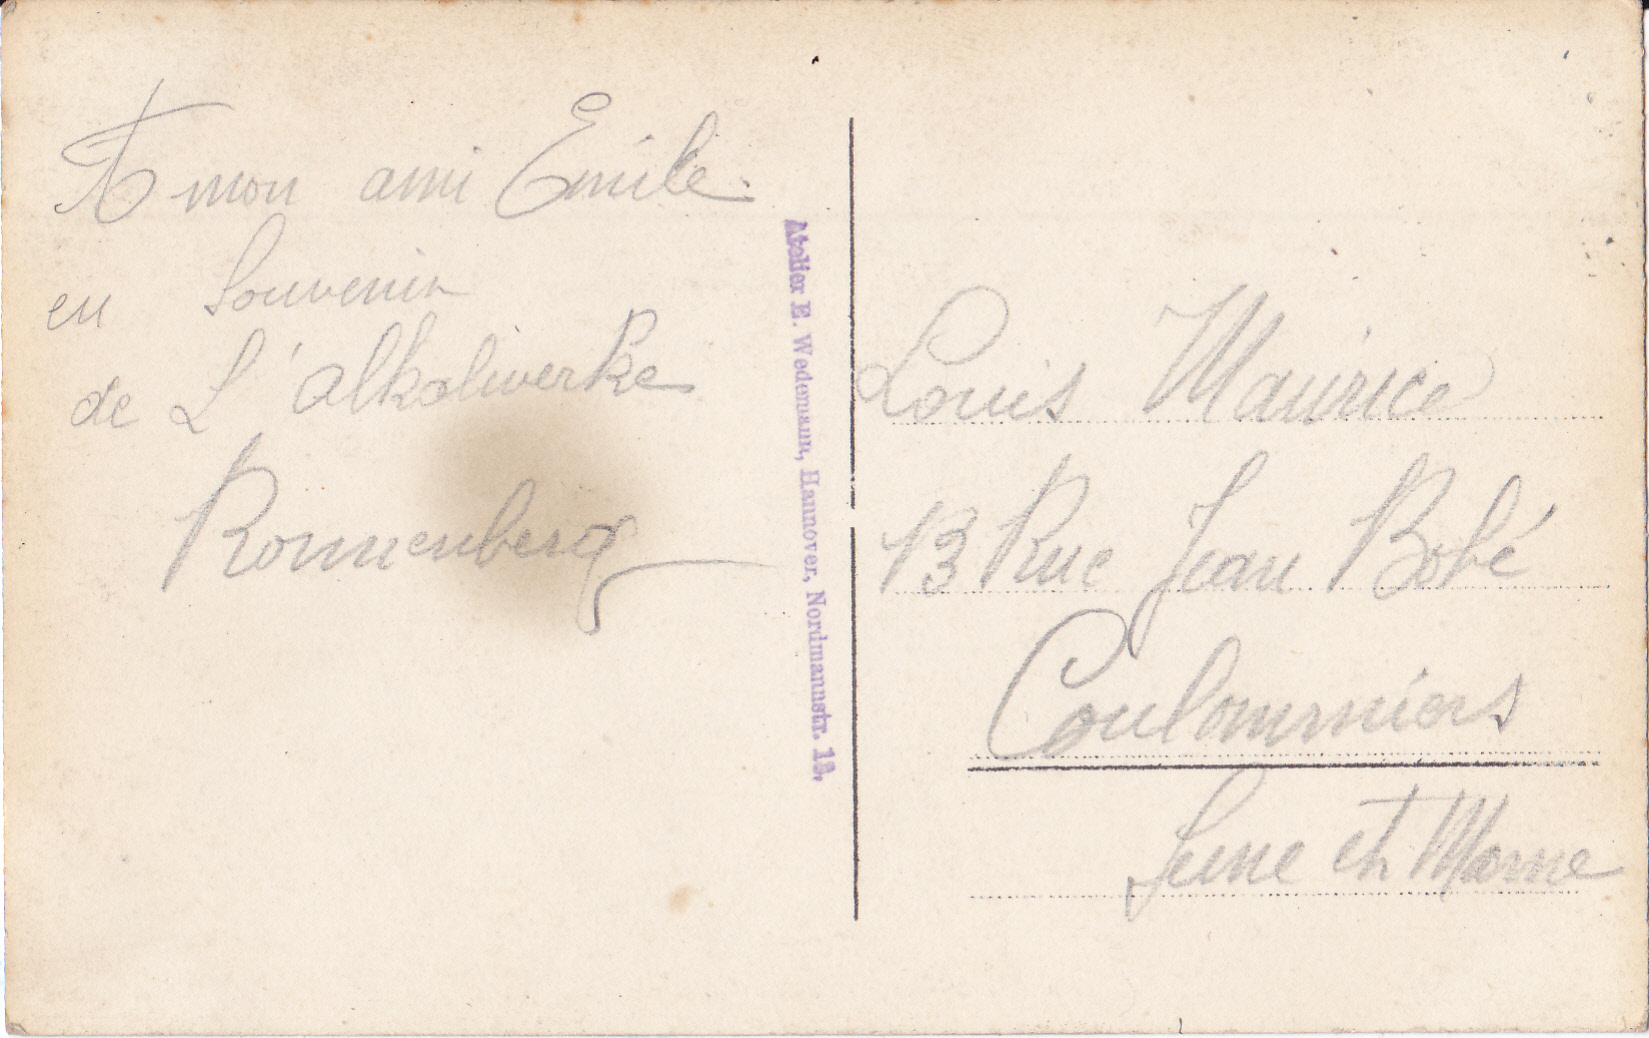 A mon ami Emile
en Souvenir
de L'alkaliwerke
Ronnenberg
Atelier E. Wedemann, Hannover, Nordmannstr. 13.
Louis Maurice
13 Rue Jean Bobé
Coulommiers
Seine et Marne